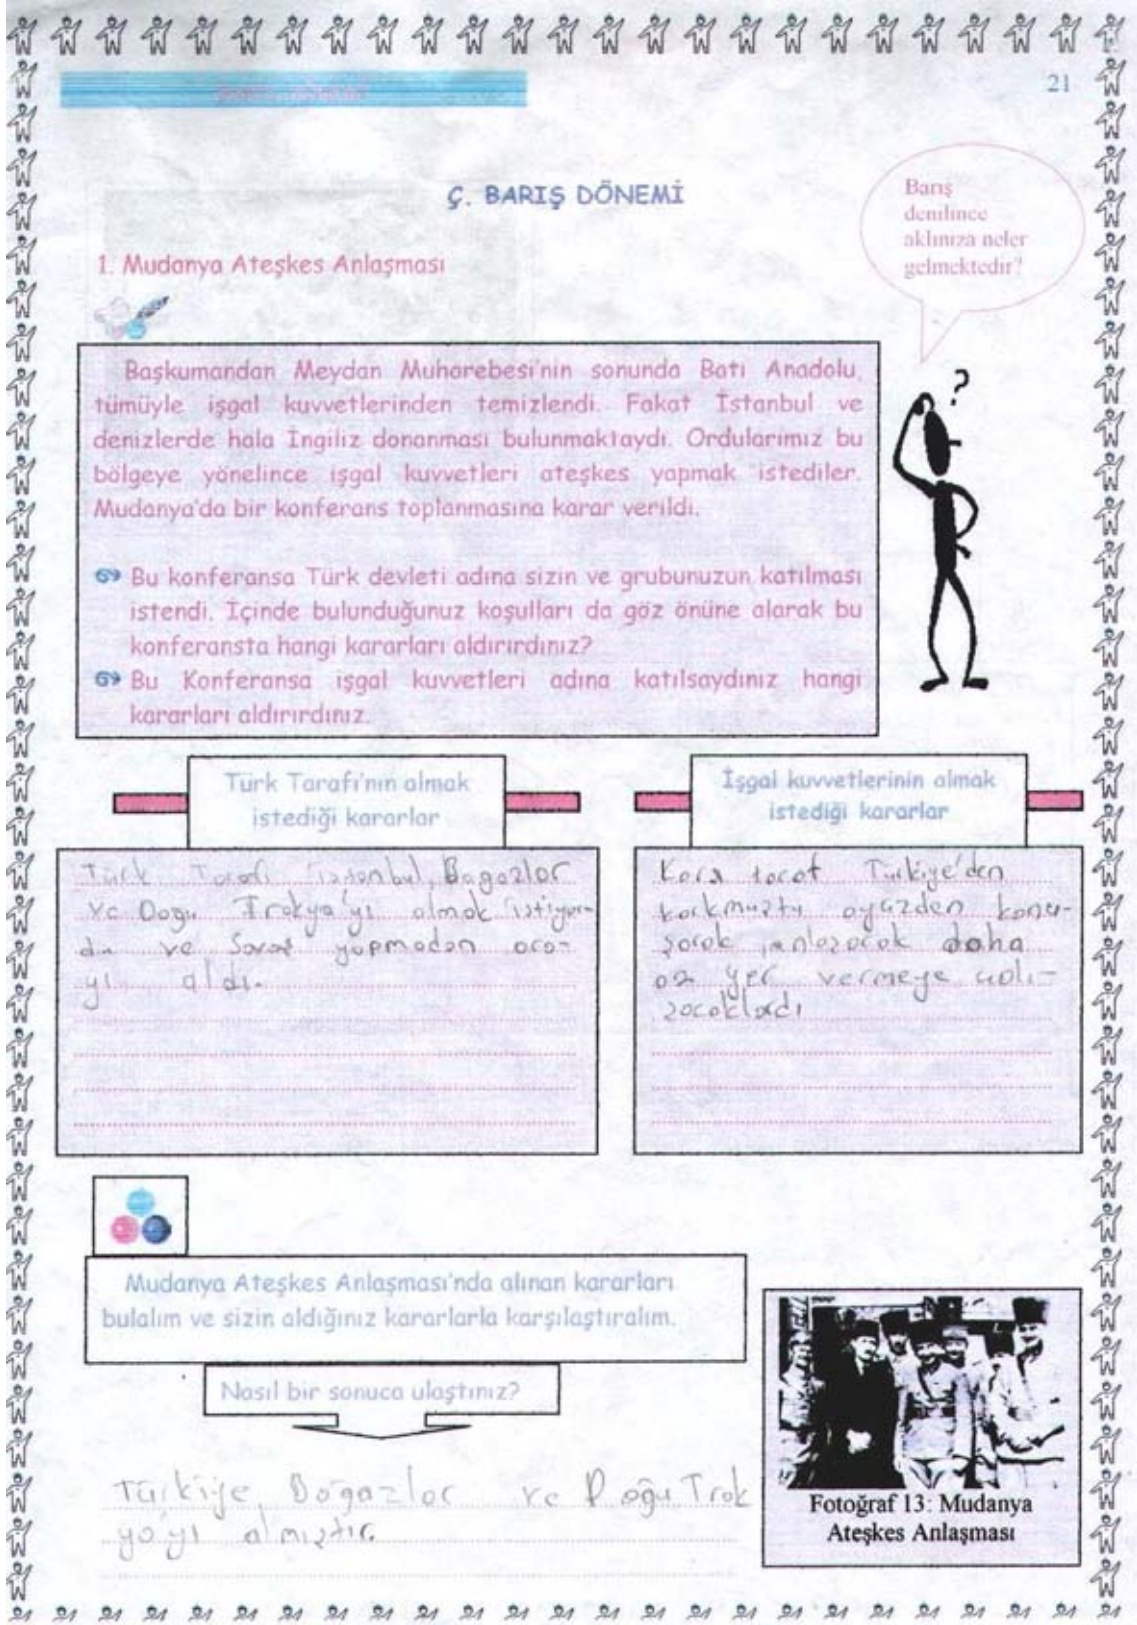 21
Ç. BARIŞ DÖNEMİ
Barış
denilince
aklınıza neler
gelmektedir?
1. Mudanya Ateşkes Anlaşması
Başkumandan Meydan Muharebesi'nin sonunda Batı Anadolu,
tümüyle işgal kuvvetlerinden temizlendi. Fakat İstanbul ve
denizlerde hala İngiliz donanması bulunmaktaydı. Ordularımız bu
bölgeye yönelince işgal kuvvetleri ateşkes yapmak istediler.
Mudanya'da bir konferans toplanmasına karar verildi.
?
Bu konferansa Türk devleti adına sizin ve grubunuzun katılması
istendi. İçinde bulunduğunuz koşulları da göz önüne alarak bu
konferansta hangi kararları aldırırdınız?
Bu Konferansa işgal kuvvetleri adına katılsaydınız hangi
kararları aldırırdınız.
Türk Tarafı'nın almak
istediği kararlar
Türk Tarafı İstanbul, Bogazlar
ve Dogu Trakya'yı almak istiyor-
du ve Savaş yapmadan ora-
yı aldı.
İşgal kuvvetlerinin almak
istediği kararlar
Karşı taraf Türkiye'den
korkmuştu oyüzden konu-
şarak, anlaşarak daha
az yer vermeye çalı-
şacaklardı
Mudanya Ateşkes Anlaşması'nda alınan kararları
bulalım ve sizin aldığınız kararlarla karşılaştıralım.
Nasıl bir sonuca ulaştınız?
Türkiye, Boğazlar ve Doğu Trak
ya'yı almıştır.
Fotoğraf 13: Mudanya
Ateşkes Anlaşması